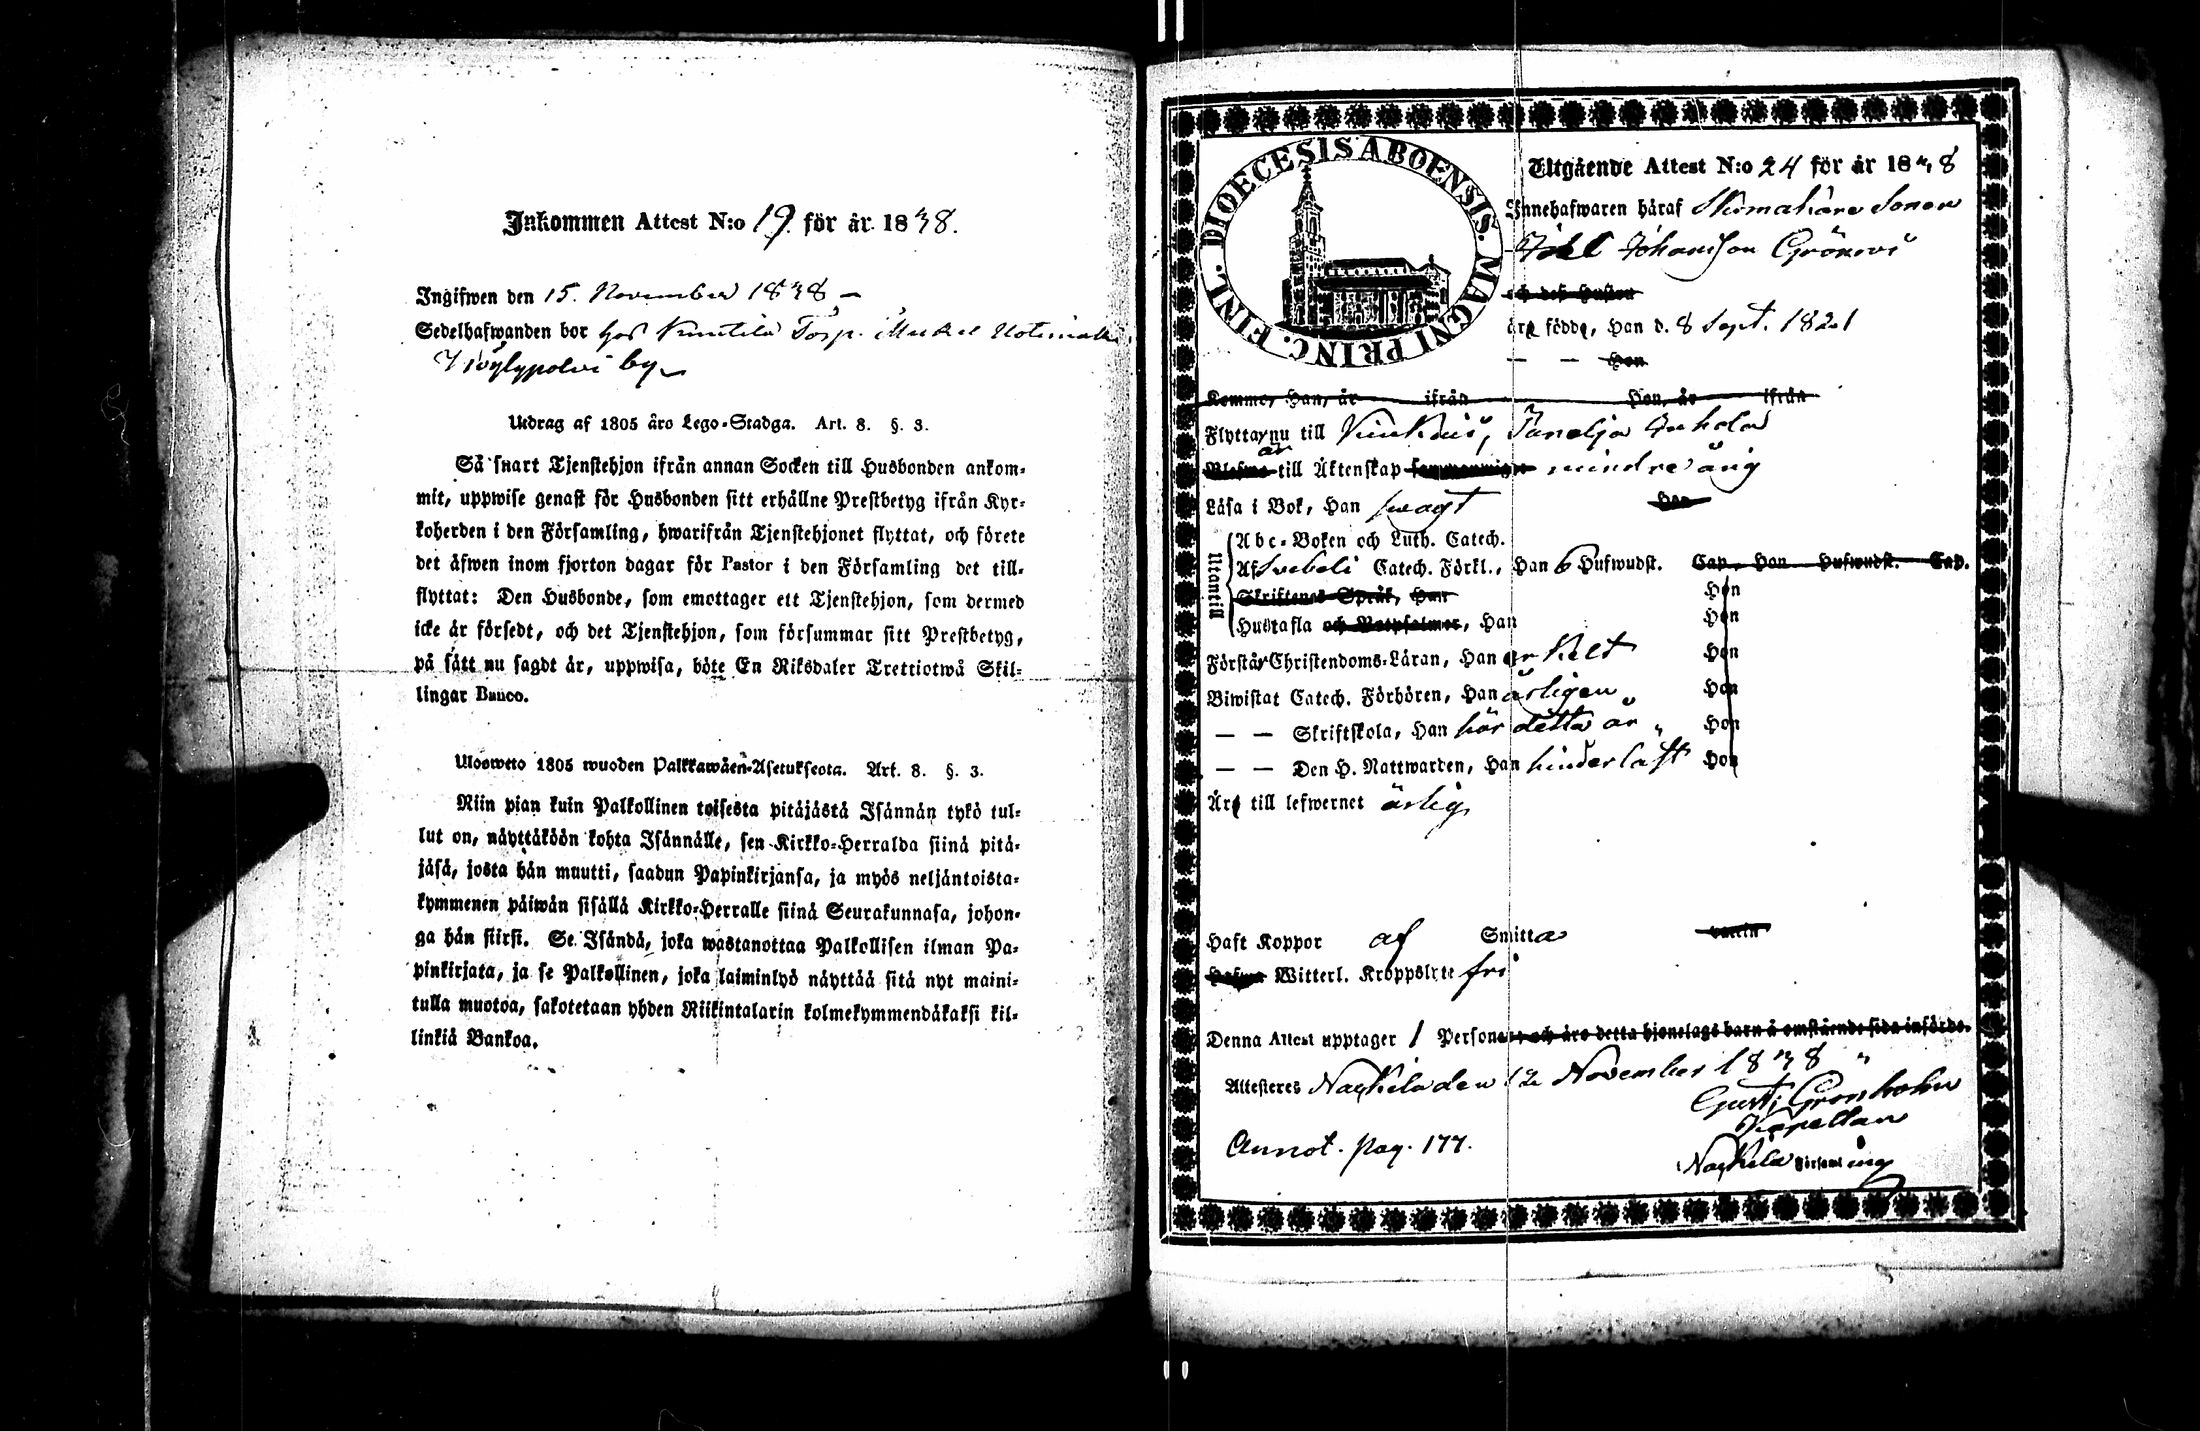 Inkommen Attest N:o 19. för år 1838.
Ingifwen den 15. November 1838 –
Sedelhafwanden bor hos Torp.
by
Utdrag af 1805 års Lego-Stadga. Art. 8. §. 3.
Så snart Tjenstehjon ifrån annan Socken till Husbonden ankom-
mit, uppwise genast för Husbonden sitt erhållne Prestbetyg ifrån Kyr-
koherden i den Församling, hwarifrån Tjenstehjonet flyttat, och förete
det äfwen inom fjorton dagar för Pastor i den Församling det till-
flyttat: Den Husbonde, som emottager ett Tjenstehjon, som dermed
icke är försedt, och det Tjenstehjon, som försummar sitt Prestbetyg,
på sätt nu sagdt är, uppwisa, böte En Riksdaler Trettiotwå Skil-
lingar Banco.
Ulosweto 1805 wuoden Palkkawäen-Asetuksesta. Art. 8. §. 3.
Niin pian kuin Palkollinen toisesta pitäjästä Isännän tykö tul-
lut on, näyttäköön kohta Isännälle, sen Kirkko-Herralda siinä pitä-
jäsä, josta hän muutti, saadun Papinkirjansa, ja myös neljäntoista-
kymmenen päiwän sisällä Kirkko-Herralle siinä Seurakunnasa, johon-
ga hän siirsi. Se Isändä, joka wastanottaa Palkollisen ilman Pa-
pinkirjata, ja se Palkollinen, joka laiminlyö näyttää sitä nyt maini-
tulla muotoa, sakotetaan yhden Riikintalarin kolmekymmendäkaksi kil-
linkiä Bankoa.
DIOECESIS ABOENSIS. MAGNI PRINC. FINL.
Utgående Attest N:o 24 för år 1838
Innehafwaren häraf Sonen
Johansson
och deß Hustru
äro födde, Han d. 8 Sept. 1821
— — Hon
Komme, Han, år ifrån Hon, år ifrån
Flyttar nu till
är
till Äktenskap mindre årig
Läsa i Bok, Han swagt Hon
Utantill
Abc-Boken och Luth. Catech.
Af Svebeli Catech. Förkl., Han 6 Hufwudst. Cap., Hon Hufwudst. Cap.
Skriftenes Språk, Han Hon
Hustafla och Botpsalmer, Han Hon
Förstår Christendoms-Läran, Han enkelt Hon
Biwistat Catech. Förhören, Han årligen Hon
— — Skriftskola, Han här detta år Hon
— — Den H. Nattwarden, Han Hon
Äro till lefwernet ärlig
Haft Koppor af Smitta
Witterl. Kroppslyte fri
Denna Attest upptager 1 Personer och äro detta hjonelags barn å omstående sida införde.
Attesteres Naykila den 12 November 1838
Gust. Gronholm
Kapellan
Naykila Församling
Annot. pag. 177.